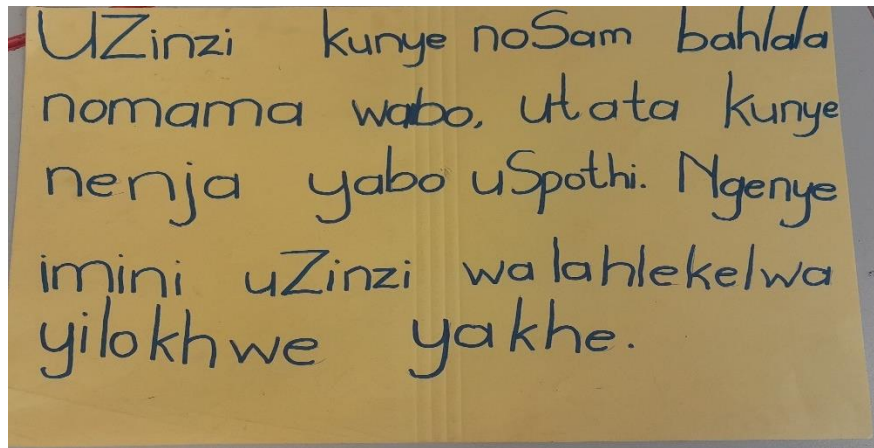 UZinzi kunye noSam bahlala
nomama wabo, utata kunye
nenja yabo uSpothi. Ngenye
imini uZinzi walahlekelwa
yilokhwe yakhe.